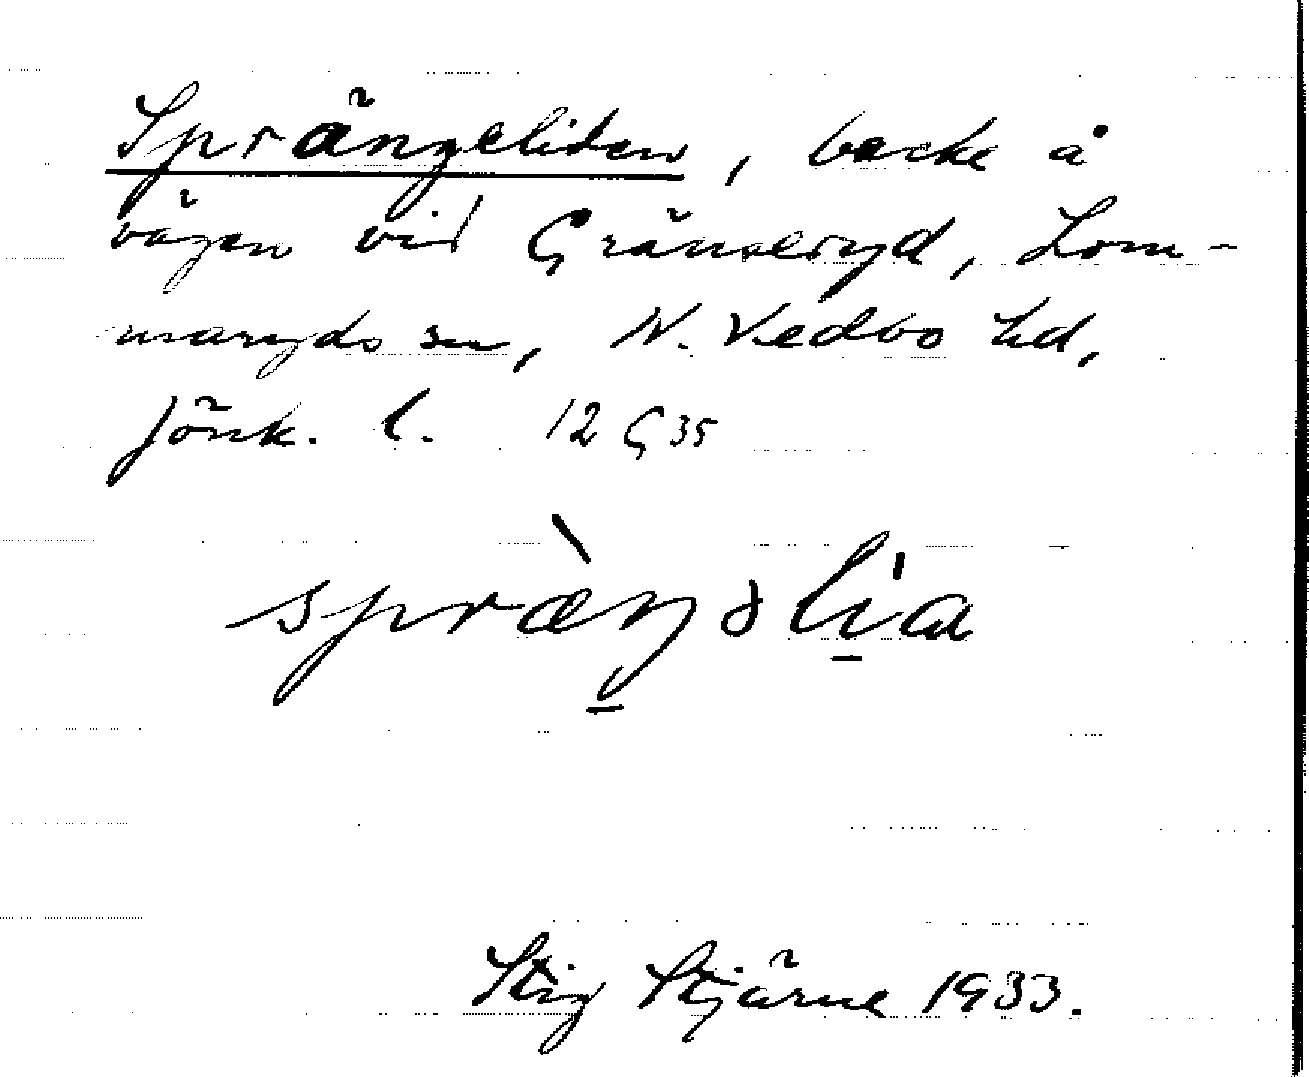 Sprängeliden, backe å
vägen vid Gränseryd, Lom-
maryds sn, N. Vedbo hd,
Jönk. l. 12 G 35
spræ̀ŋəli̍a
Stig Stjärne 1933.